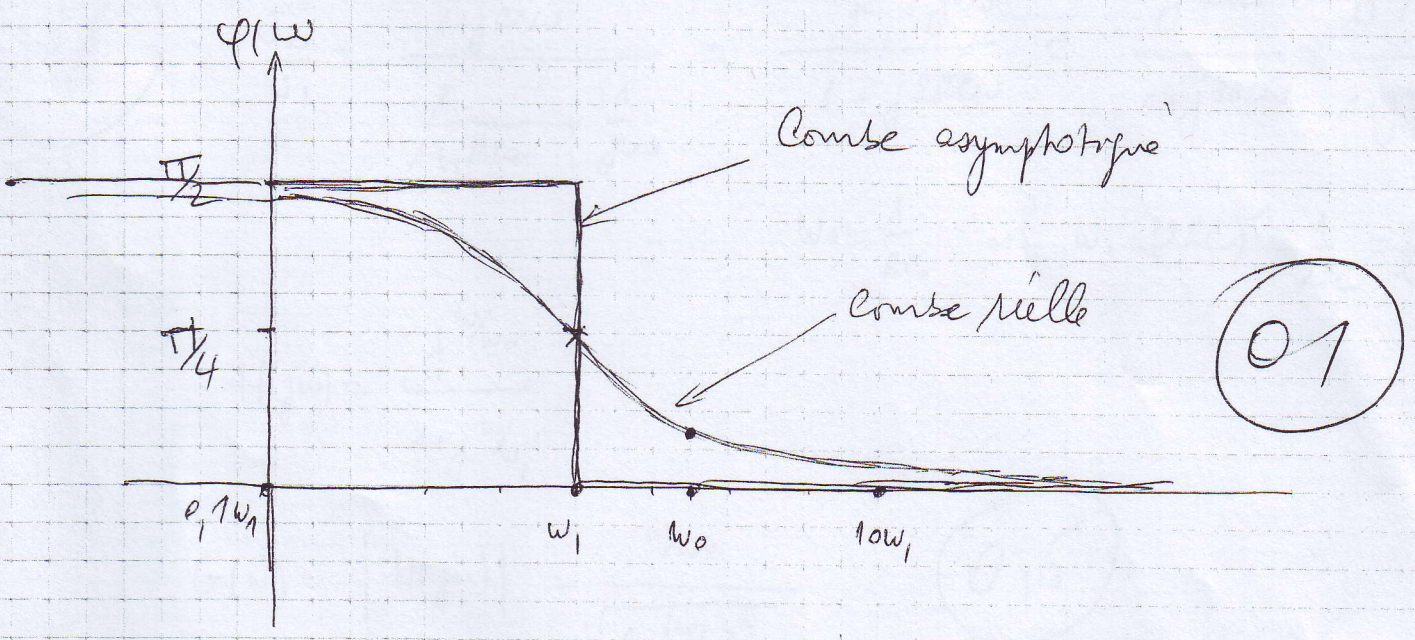 φ(ω
Courbe asymptotique
π/2
courbe réelle
π/4
01
0,1ω₁
ω₁
ω₀
10ω₁